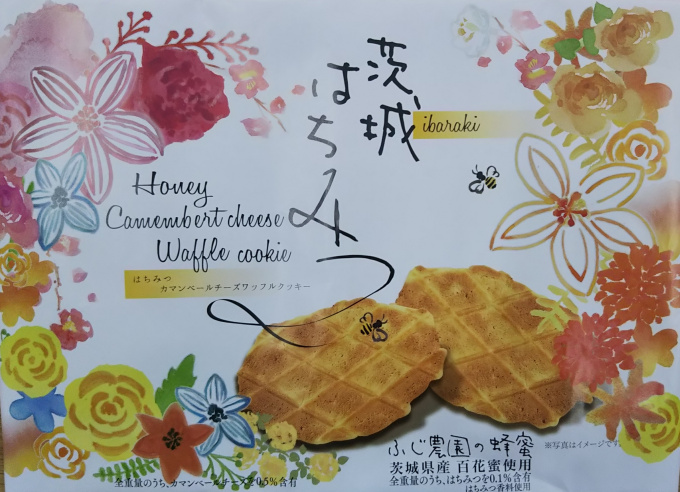 茨城
はちみつ
ibaraki
Honey
Camembert cheese
Waffle cookie
はちみつ
カマンベールチーズワッフルクッキー
ふじ農園の蜂蜜
茨城県産 百花蜜使用
全重量のうち、はちみつを0.1%含有
はちみつ香料使用
※写真はイメージです。
全重量のうち、カマンベールチーズを0.5%含有